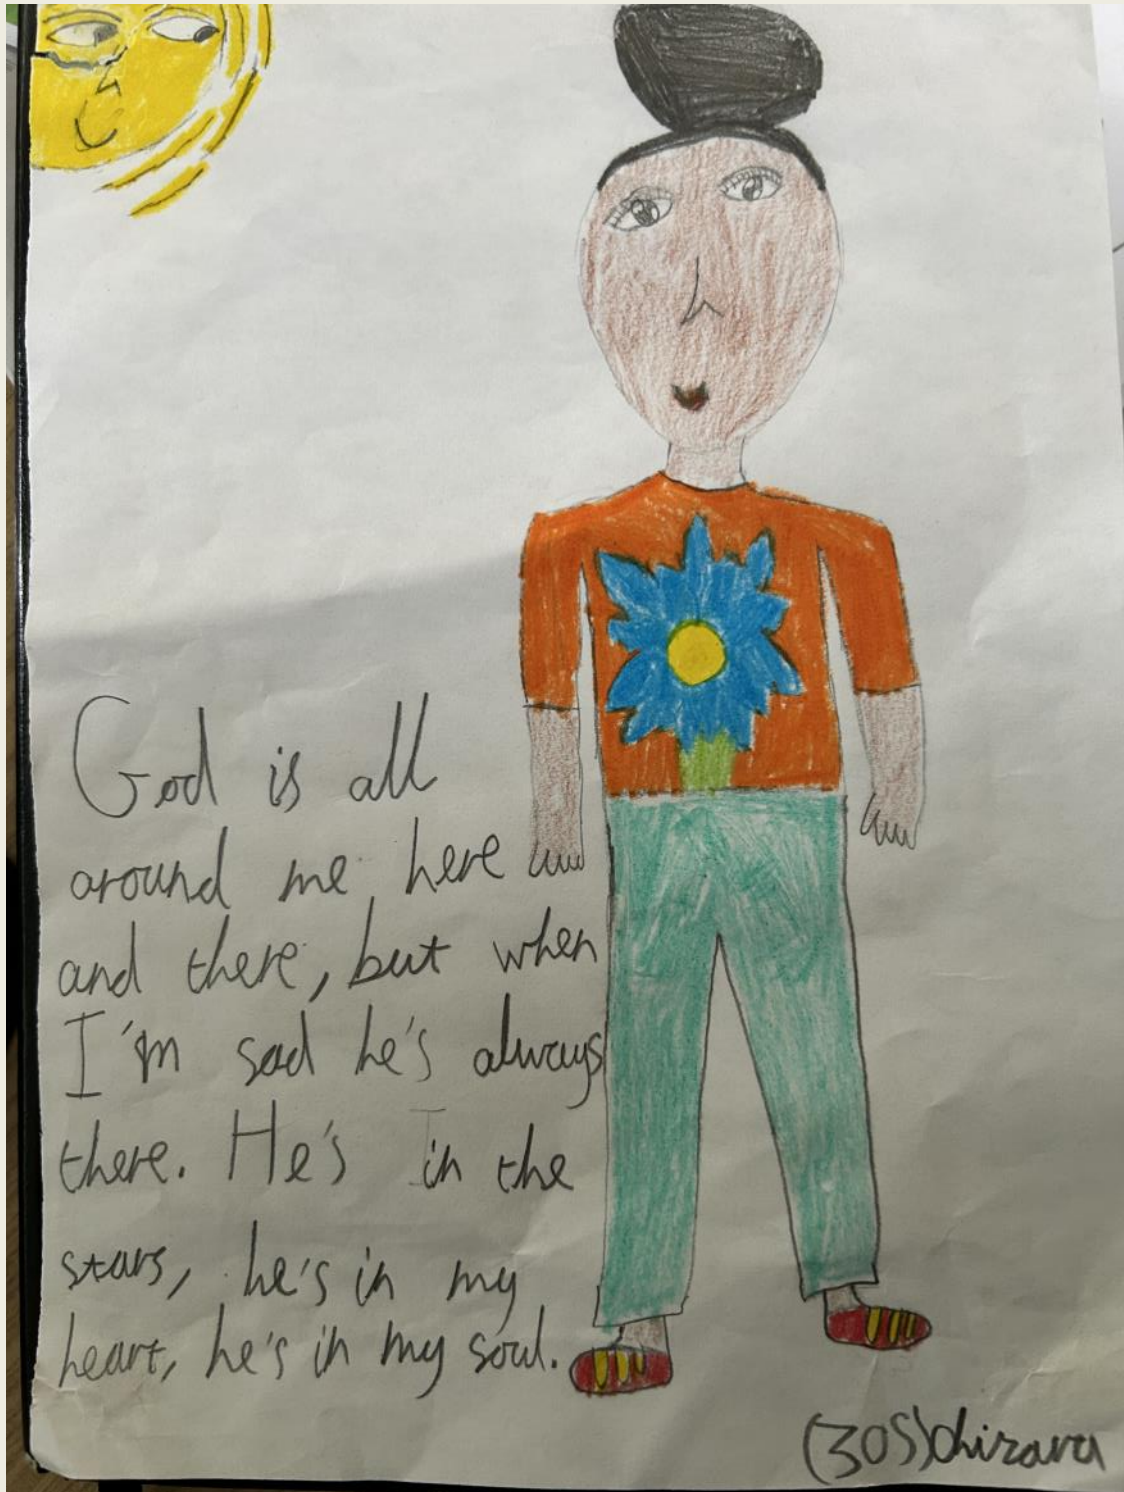 God is all
around me here
and there, but when
I'm sad he's always
there. He's in the
stars, he's in my
heart, he's in my soul.
(30S)